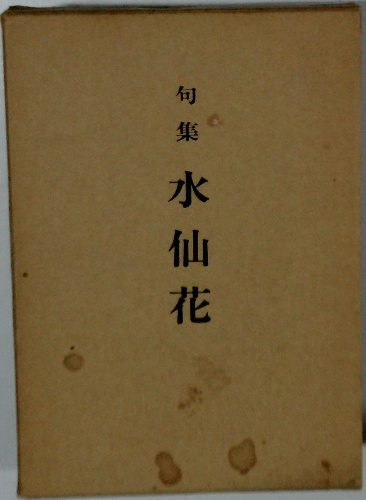 句集 水仙花